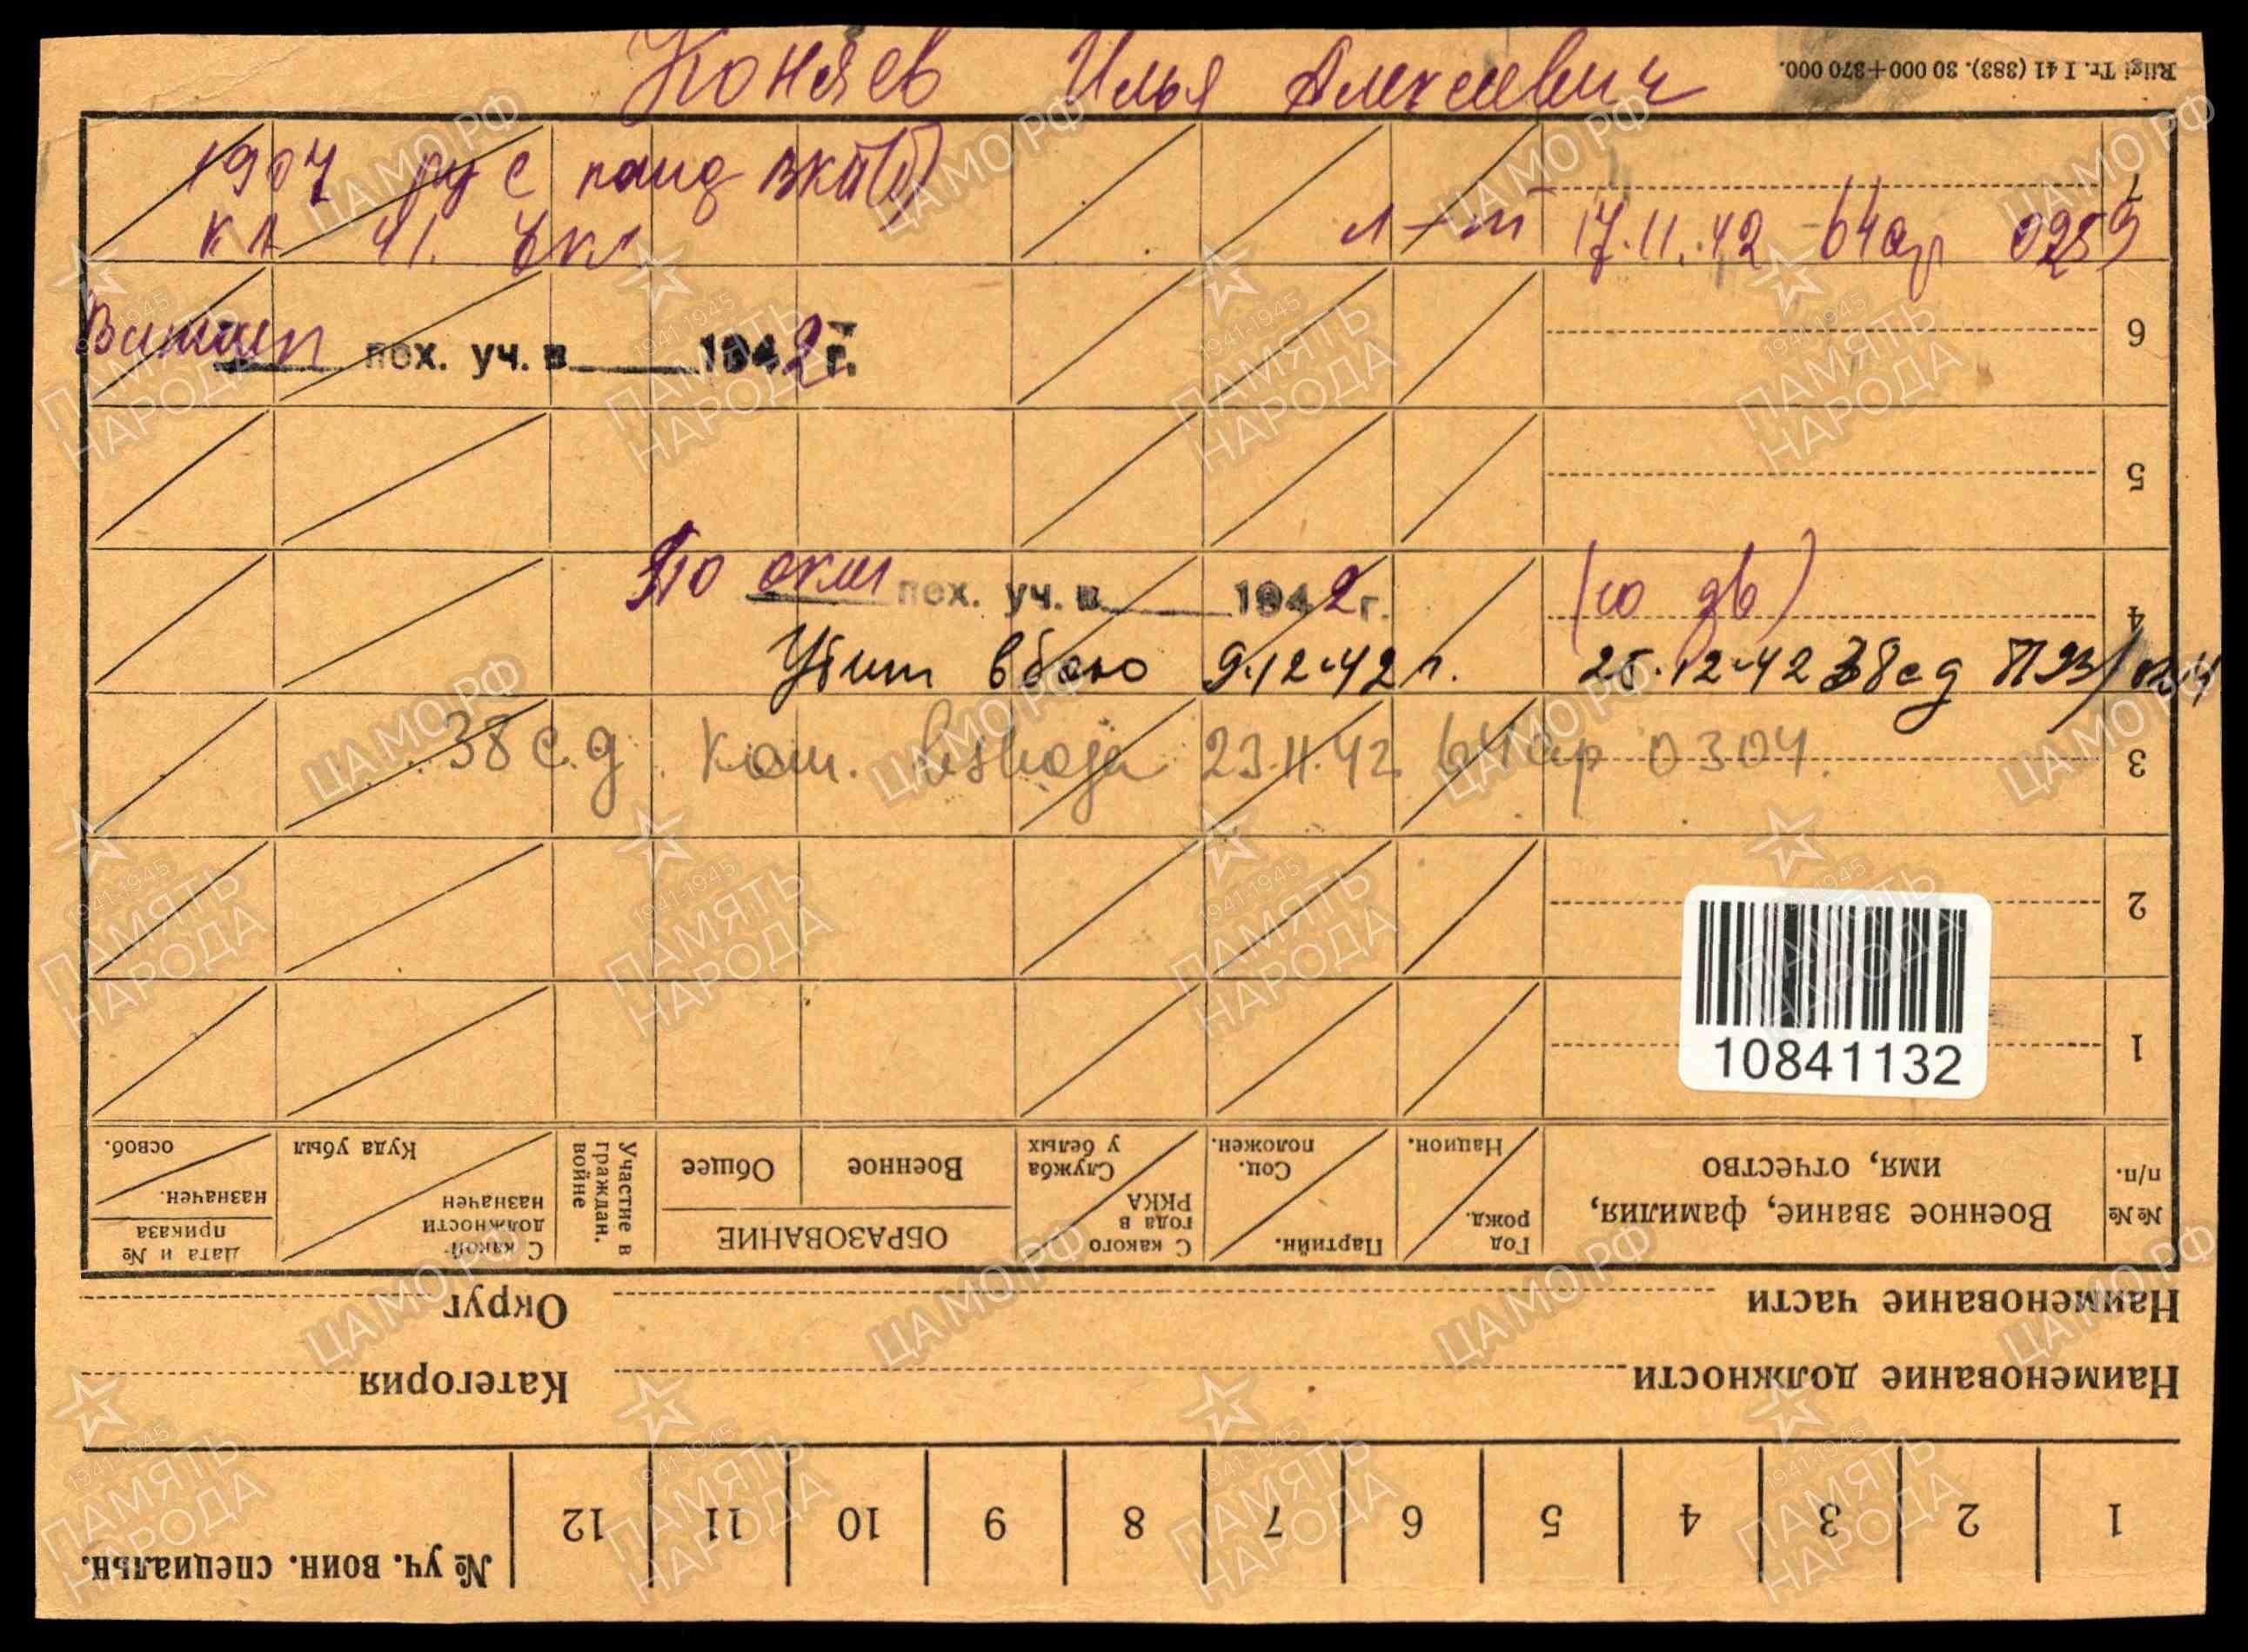 Коняев Илья Алексеевич
Riigi Tr. I 41 (383). 30 000+370 000.
1907 рус канд ВКП(б)
КА 41. л-т 17.11.42 64ар 0259
пох. уч. в 1942 г.
По окт пох. уч. в 1942 г.
Убит в бою 9.12.42 г. 25.12.42 38сд
38 с.д. Ком. взвода 23.11.42. 64ар 0304.
10841132
7
6
5
4
3
2
1
№№ п/п.
Военное звание, фамилия, имя, отчество
Год рожд.
Национ.
Партийн.
Соц. положен.
С какого года в РККА
Служба у белых
ОБРАЗОВАНИЕ
Военное
Общее
Участие в граждан. войне
С какой должности назначен
Куда убыл
Дата и № приказа
назначен.
освоб.
Наименование части
Округ
Наименование должности
Категория
1 2 3 4 5 6 7 8 9 10 11 12
№ уч. воин. специальн.
ЦАМО РФ
1941-1945
ПАМЯТЬ
НАРОДА